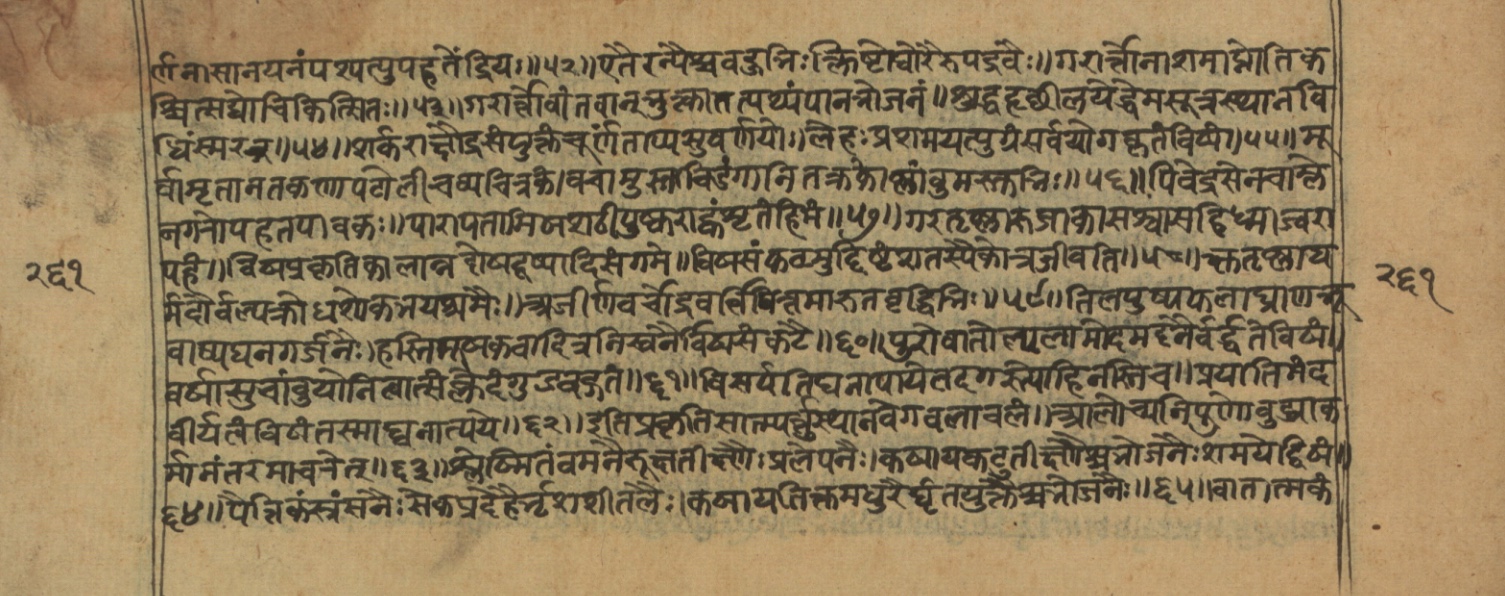 र्णनासानयनंपश्यत्युपहतेंद्रियः॥५२॥एतैरन्यैश्चबहुभिःक्लिष्टोघोरैरुपद्रवैः॥गरार्त्तोनाशमाप्नोतिक
श्चित्सद्योचिकित्सितः॥५३॥गरार्त्तोवांतवान्भुक्त्वातत्पथ्यंपानभोजनं॥शुद्धहृछीलयेद्धेमसूत्रस्थानवि
धिंस्मरन्॥५४॥शर्कराक्षौद्रसंयुक्तंचूर्णंताप्यसुवर्णयोः॥लेहःप्रशमयत्युग्रंसर्वयोगकृतंविषं॥५५॥मू
र्वामृतानतकणापटोलीचव्यचित्रकं।वचामुस्तविडंगानितक्रकोष्णांबुमस्तुभिः॥५६॥पिबेद्रसेनवाम्ले
नगरोपहतपावकः॥पारापतामिषशठीपुष्कराह्वंशृतंहिमं॥५७॥गरतृष्णारुजाकासश्वासहिध्माज्वरा
पहं॥विषप्रकृतिकालान्नदोषदूष्यादिसंगमे॥विषसंकटमुद्दिष्टंशतस्यैकोत्रजीवति॥५८॥क्षुत्तृष्णाघ
र्मदौर्बल्यक्रोधशोकभयश्रमैः॥अजीर्णवर्चोद्रवर्त्तिपित्तमारुतवृद्धिभिः॥५९॥तिलपुष्पफलाघ्राणभू
वाष्पघनगर्जनैः।हस्तिमूषकवादित्रनिस्वनैर्विषसंकटैः॥६०॥पुरोवातोत्पलामोदमर्दनैर्वर्द्धतेविषं॥
वर्षासुचांबुयोनित्वात्संक्लेदंगुडवद्गतं॥६१॥विसर्पतिघनापायेतदगस्त्योहिनस्तिच॥प्रयातिमंद
वीर्यत्वंविषंतस्माद्घनात्यये॥६२॥इतिप्रकृतिसात्म्यर्त्तुस्थानवेगबलाबलं॥आलोच्यनिपुणोबुद्ध्याक
र्मानंतरमाचरेत्॥६३॥श्लैष्मितंवमनैरूक्षतीक्ष्णैःप्रलेपनैः।कषायकटुतीक्ष्णैश्चभोजनैःशमयेद्विषं॥
६४॥पैत्तिकंस्रंसनैःसेकप्रदेहैर्भृशशीतलैः।कषायतिक्तमधुरैर्घृतयुक्तैश्चभोजनैः॥६५॥वातात्मकं
२६१
२६१